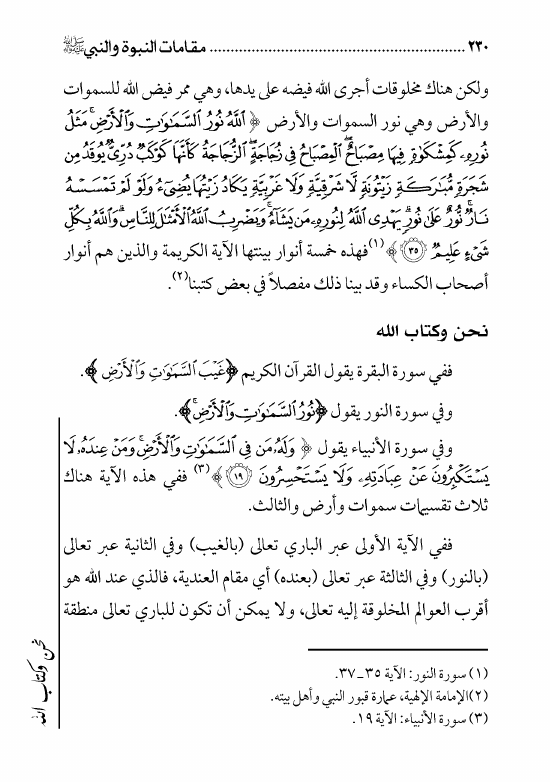 ٢٣٠ ........................................................ مقامات النبوة والنبي ﷺ
ولكن هناك مخلوقات أجرى الله فيضه على يدها، وهي ممر فيض الله للسموات
والأرض وهي نور السموات والأرض ﴿ ٱللَّهُ نُورُ ٱلسَّمَٰوَٰتِ وَٱلْأَرْضِ ۚ مَثَلُ
نُورِهِۦ كَمِشْكَوٰةٍ فِيهَا مِصْبَاحٌ ۖ ٱلْمِصْبَاحُ فِي زُجَاجَةٍ ۖ ٱلزُّجَاجَةُ كَأَنَّهَا كَوْكَبٌ دُرِّيٌّ يُوقَدُ مِن
شَجَرَةٍ مُّبَٰرَكَةٍ زَيْتُونَةٍ لَّا شَرْقِيَّةٍ وَلَا غَرْبِيَّةٍ يَكَادُ زَيْتُهَا يُضِيٓءُ وَلَوْ لَمْ تَمْسَسْهُ
نَارٌ ۚ نُّورٌ عَلَىٰ نُورٍ ۗ يَهْدِي ٱللَّهُ لِنُورِهِۦ مَن يَشَآءُ ۚ وَيَضْرِبُ ٱللَّهُ ٱلْأَمْثَٰلَ لِلنَّاسِ ۗ وَٱللَّهُ بِكُلِّ
شَيْءٍ عَلِيمٌ ﴿٣٥﴾ ﴾(١) فهذه خمسة أنوار بينتها الآية الكريمة والذين هم أنوار
أصحاب الكساء وقد بينا ذلك مفصلاً في بعض كتبنا(٢).
نحن وكتاب الله
ففي سورة البقرة يقول القرآن الكريم ﴿غَيْبَ ٱلسَّمَٰوَٰتِ وَٱلْأَرْضِ ﴾.
وفي سورة النور يقول ﴿نُورُ ٱلسَّمَٰوَٰتِ وَٱلْأَرْضِ ۚ﴾.
وفي سورة الأنبياء يقول ﴿ وَلَهُۥ مَن فِي ٱلسَّمَٰوَٰتِ وَٱلْأَرْضِ ۚ وَمَنْ عِندَهُۥ لَا
يَسْتَكْبِرُونَ عَنْ عِبَادَتِهِۦ وَلَا يَسْتَحْسِرُونَ ﴿١٩﴾ ﴾(٣) ففي هذه الآية هناك
ثلاث تقسيمات سموات وأرض والثالث.
ففي الآية الأولى عبر الباري تعالى (بالغيب) وفي الثانية عبر تعالى
(بالنور) وفي الثالثة عبر تعالى (بعنده) أي مقام العندية، فالذي عند الله هو
أقرب العوالم المخلوقة إليه تعالى، ولا يمكن أن تكون للباري تعالى منطقة
(١) سورة النور: الآية ٣٥-٣٧.
(٢)الإمامة الإلهية، عمارة قبور النبي وأهل بيته.
(٣) سورة الأنبياء: الآية ١٩.
نحن وكتاب الله